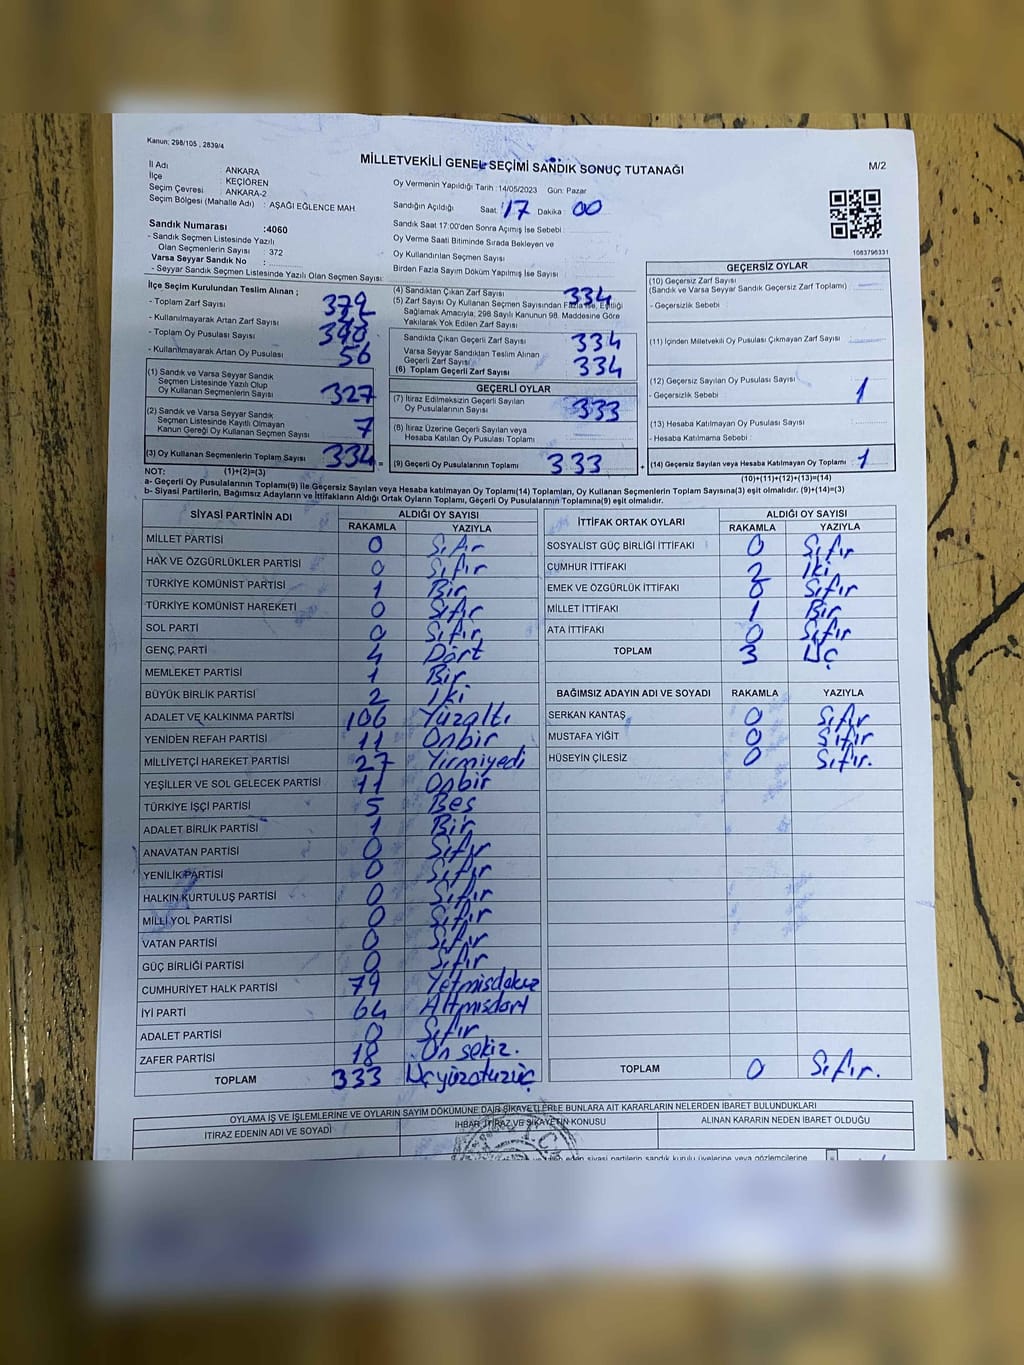 Kanun; 298/105 , 2839/4
MİLLETVEKİLİ GENEL SEÇİMİ SANDIK SONUÇ TUTANAĞI
M/2
İl Adı ANKARA
İlçe : KEÇİÖREN
Seçim Çevresi : ANKARA-2
Seçim Bölgesi (Mahalle Adı) : AŞAĞI EĞLENCE MAH.
Oy Vermenin Yapıldığı Tarih : 14/05/2023 Gün: Pazar
Sandığın Açıldığı Saat: 17 Dakika : 00
Sandık Saat 17:00'den Sonra Açımış İse Sebebi :
Oy Verme Saati Bitiminde Sırada Bekleyen ve
Oy Kullandırılan Seçmen Sayısı :
Birden Fazla Sayım Döküm Yapılmış İse Sayısı :
1083796331
Sandık Numarası :4060
- Sandık Seçmen Listesinde Yazılı
Olan Seçmenlerin Sayısı : 372
Varsa Seyyar Sandık No :
- Seyyar Sandık Seçmen Listesinde Yazılı Olan Seçmen Sayısı:
İlçe Seçim Kurulundan Teslim Alınan ;
- Toplam Zarf Sayısı
- Kullanılmayarak Artan Zarf Sayısı
- Toplam Oy Pusulası Sayısı
- Kullanılmayarak Artan Oy Pusulası 56
(1) Sandık ve Varsa Seyyar Sandık
Seçmen Listesinde Yazılı Olup
Oy Kullanan Seçmenlerin Sayısı 327
(2) Sandık ve Varsa Seyyar Sandık
Seçmen Listesinde Kayıtlı Olmayan
Kanun Gereği Oy Kullanan Seçmen Sayısı 7
(3) Oy Kullanan Seçmenlerin Toplam Sayısı 334 =
(4) Sandıktan Çıkan Zarf Sayısı 334
(5) Zarf Sayısı Oy Kullanan Seçmen Sayısından Fazla İse, Eşitliği
Sağlamak Amacıyla; 298 Sayılı Kanunun 98. Maddesine Göre
Yakılarak Yok Edilen Zarf Sayısı :
Sandıkta Çıkan Geçerli Zarf Sayısı 334
Varsa Seyyar Sandıktan Teslim Alınan
Geçerli Zarf Sayısı
(6) Toplam Geçerli Zarf Sayısı 334
GEÇERLİ OYLAR
(7) İtiraz Edilmeksizin Geçerli Sayılan
Oy Pusulalarının Sayısı 333
(8) İtiraz Üzerine Geçerli Sayılan veya
Hesaba Katılan Oy Pusulası Toplamı
(9) Geçerli Oy Pusulalarının Toplamı 333 +
GEÇERSİZ OYLAR
(10) Geçersiz Zarf Sayısı
(Sandık ve Varsa Seyyar Sandık Geçersiz Zarf Toplamı)
- Geçersizlik Sebebi :
(11) İçinden Milletvekili Oy Pusulası Çıkmayan Zarf Sayısı
(12) Geçersiz Sayılan Oy Pusulası Sayısı 1
- Geçersizlik Sebebi :
(13) Hesaba Katılmayan Oy Pusulası Sayısı
- Hesaba Katılmama Sebebi :
(14) Geçersiz Sayılan veya Hesaba Katılmayan Oy Toplamı 1
NOT: (1)+(2)=(3)
(10)+(11)+(12)+(13)=(14)
a- Geçerli Oy Pusulalarının Toplamı(9) ile Geçersiz Sayılan veya Hesaba katılmayan Oy Toplamı(14) Toplamları, Oy Kullanan Seçmenlerin Toplam Sayısına(3) eşit olmalıdır. (9)+(14)=(3)
b- Siyasi Partilerin, Bağımsız Adayların ve İttifakların Aldığı Ortak Oyların Toplamı, Geçerli Oy Pusulalarının Toplamına(9) eşit olmalıdır.
SİYASİ PARTİNİN ADI ALDIĞI OY SAYISI
RAKAMLA YAZIYLA
MİLLET PARTİSİ 0 Sıfır
HAK VE ÖZGÜRLÜKLER PARTİSİ 0 Sıfır
TÜRKİYE KOMÜNİST PARTİSİ 1 Bir
TÜRKİYE KOMÜNİST HAREKETİ 0 Sıfır
SOL PARTİ 0 Sıfır
GENÇ PARTİ 4 Dört
MEMLEKET PARTİSİ 1 Bir
BÜYÜK BİRLİK PARTİSİ 2 İki
ADALET VE KALKINMA PARTİSİ 106 Yüzaltı
YENİDEN REFAH PARTİSİ 11 Onbir
MİLLİYETÇİ HAREKET PARTİSİ 27 Yirmiyedi
YEŞİLLER VE SOL GELECEK PARTİSİ 11 Onbir
TÜRKİYE İŞÇİ PARTİSİ 5 Beş
ADALET BİRLİK PARTİSİ 1 Bir
ANAVATAN PARTİSİ 0 Sıfır
YENİLİK PARTİSİ 0 Sıfır
HALKIN KURTULUŞ PARTİSİ 0 Sıfır
MİLLİ YOL PARTİSİ 0 Sıfır
VATAN PARTİSİ 0 Sıfır
GÜÇ BİRLİĞİ PARTİSİ 0 Sıfır
CUMHURİYET HALK PARTİSİ 79 Yetmişdokuz
İYİ PARTİ 64 Altmışdört
ADALET PARTİSİ 0 Sıfır
ZAFER PARTİSİ 18 On sekiz.
TOPLAM 333 Üçyüzotuzüç
İTTİFAK ORTAK OYLARI ALDIĞI OY SAYISI
RAKAMLA YAZIYLA
SOSYALİST GÜÇ BİRLİĞİ İTTİFAKI 0 Sıfır
CUMHUR İTTİFAKI 2 İki
EMEK VE ÖZGÜRLÜK İTTİFAKI 0 Sıfır
MİLLET İTTİFAKI 1 Bir
ATA İTTİFAKI 0 Sıfır
TOPLAM 3 Üç
BAĞIMSIZ ADAYIN ADI VE SOYADI RAKAMLA YAZIYLA
SERKAN KANTAŞ 0 Sıfır
MUSTAFA YİĞİT 0 Sıfır
HÜSEYİN ÇİLESİZ 0 Sıfır.
TOPLAM 0 Sıfır.
OYLAMA İŞ VE İŞLEMLERİNE VE OYLARIN SAYIM DÖKÜMÜNE DAİR ŞİKAYETLERLE BUNLARA AİT KARARLARIN NELERDEN İBARET BULUNDUKLARI
İTİRAZ EDENİN ADI VE SOYADI İHBAR, İTİRAZ VE ŞİKAYETİN KONUSU ALINAN KARARIN NEDEN İBARET OLDUĞU